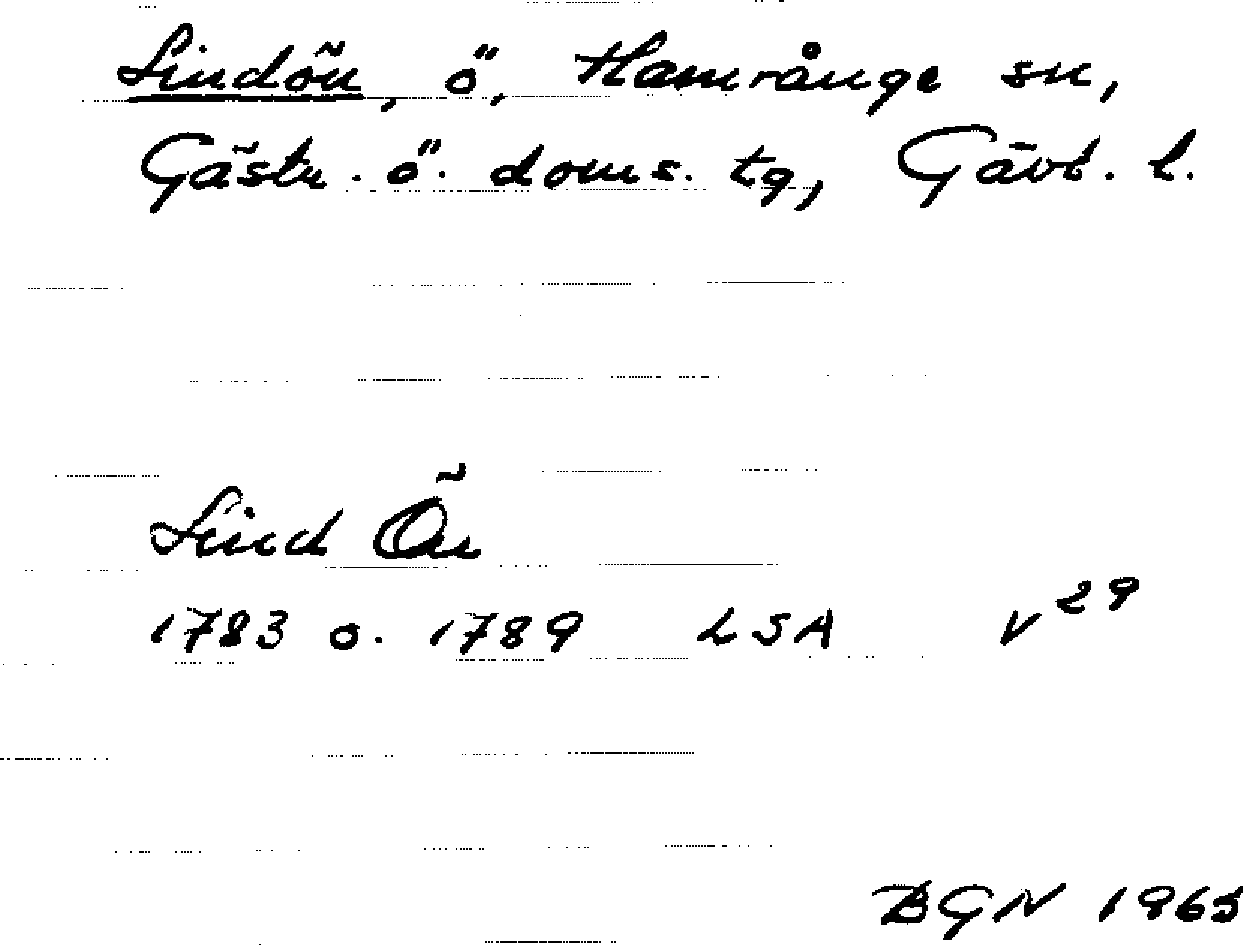 Lindön, ö, Hamrånge sn,
Gästr. ö. doms. tg, Gävl. l.
Lind Ön
1783 o. 1789 LSA V29
BGN 1965